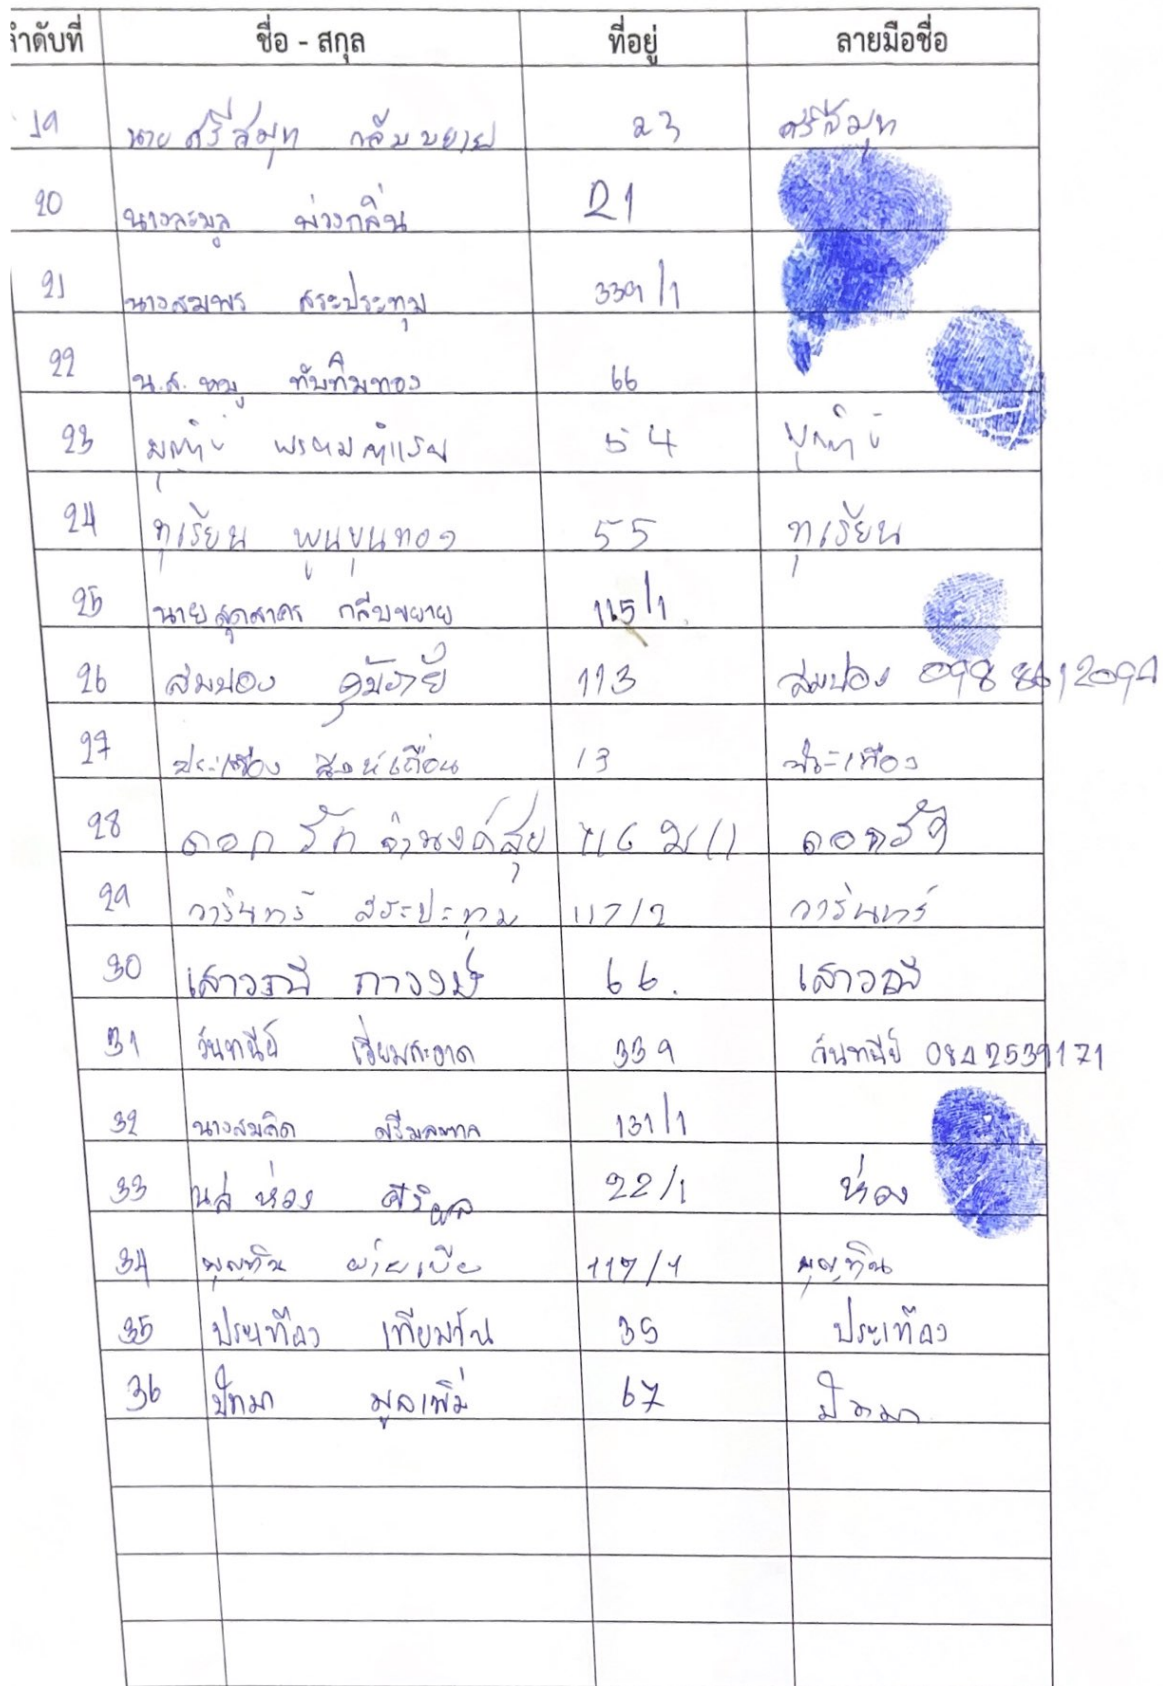 ลำดับที่ ชื่อ - สกุล ที่อยู่ ลายมือชื่อ
19 นาย ศรีสมุท กลีบขยาย 23 ศรีสมุท
20 นางละมูล ม่วงกลิ่น 21
21 นางสมพร สระประทุม 339/1
22 น.ส. หมู ทับทิมทอง 66
23 54
24 ทุเรียน พูนขุนทอง 55 ทุเรียน
25 นายสุดสาคร กลีบขยาย 115/1
26 สมปอง 113 สมปอง 098 8612094
27 ประเทือง สิงห์เถื่อน 13 ประเทือง
28 ดอกรัก จำนงค์สุข 116 ม11 ดอกรัก
29 วารินทร์ สระประทุม 117/2 วารินทร์
30 เสาวณี 66. เสาวณี
31 วันทนีย์ เอี่ยมสะอาด 339 วันทนีย์ 0842539171
32 นางสมคิด 131/1
33 นส ห่วง 22/1 ห่วง
34 บุญทิน 117/1 บุญทิน
35 ประเทือง เทียมวัน 35 ประเทือง
36 ปัทมา มูลเพิ่ม 67 ปัทมา